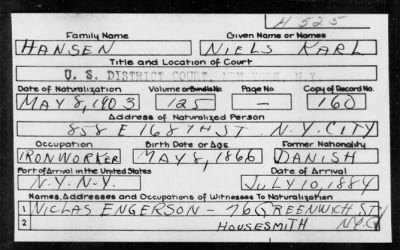 H 525
Family Name Given Name or Names
HANSEN NIELS KARL
Title and Location of Court
U. S. DISTRICT COURT, NEW YORK, N.Y.
Date of Naturalization Volume or Bundle No. Page No. Copy of Record No.
MAY 8, 1903 125 — 160
Address of Naturalized Person
858 E 168TH ST. N.Y. CITY
Occupation Birth Date or Age Former Nationality
IRONWORKER MAY 8, 1866 DANISH
Port of Arrival in the United States Date of Arrival
N.Y. N.Y. JULY 10, 1884
Names, Addresses and Occupations of Witnesses To Naturalization
1 NICLAS ENGERSON - 76 GREENWICH ST
2 HOUSESMITH NYC